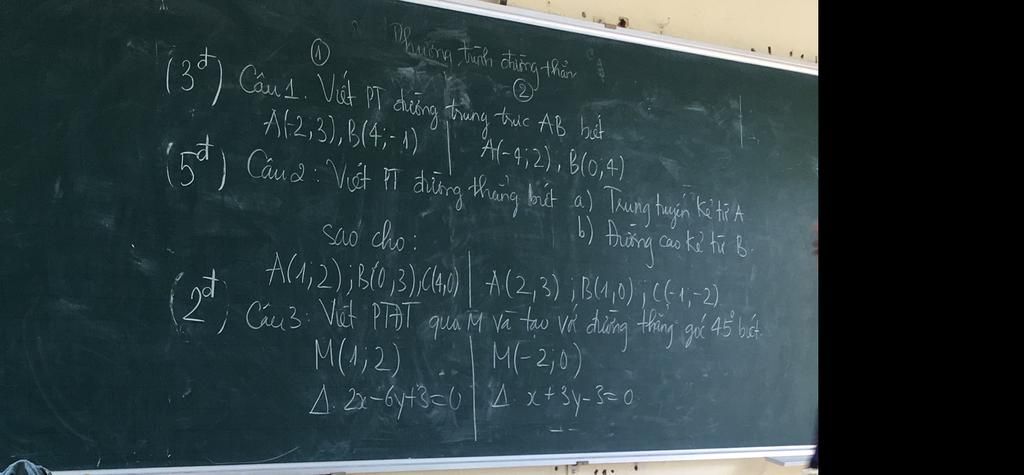 Phương trình đường thẳn
① ②
(3đ) Câu 1. Viết PT đường trung trực AB biết
A(-2,3), B(4;-1) | A(-4;2), B(0,4)
(5đ) Câu 2: Viết PT đường thẳng biết a) Trung tuyến kẻ từ A
b) Đường cao kẻ từ B.
sao cho:
A(1;2); B(0,3), C(4,0) | A(2,3); B(1,0); C(-1,-2)
(2đ) Câu 3: Viết PTĐT qua M và tạo với đường thẳng góc 45° biết.
M(1;2) | M(-2;0)
Δ. 2x-6y+3=0 | Δ. x+3y-3=0